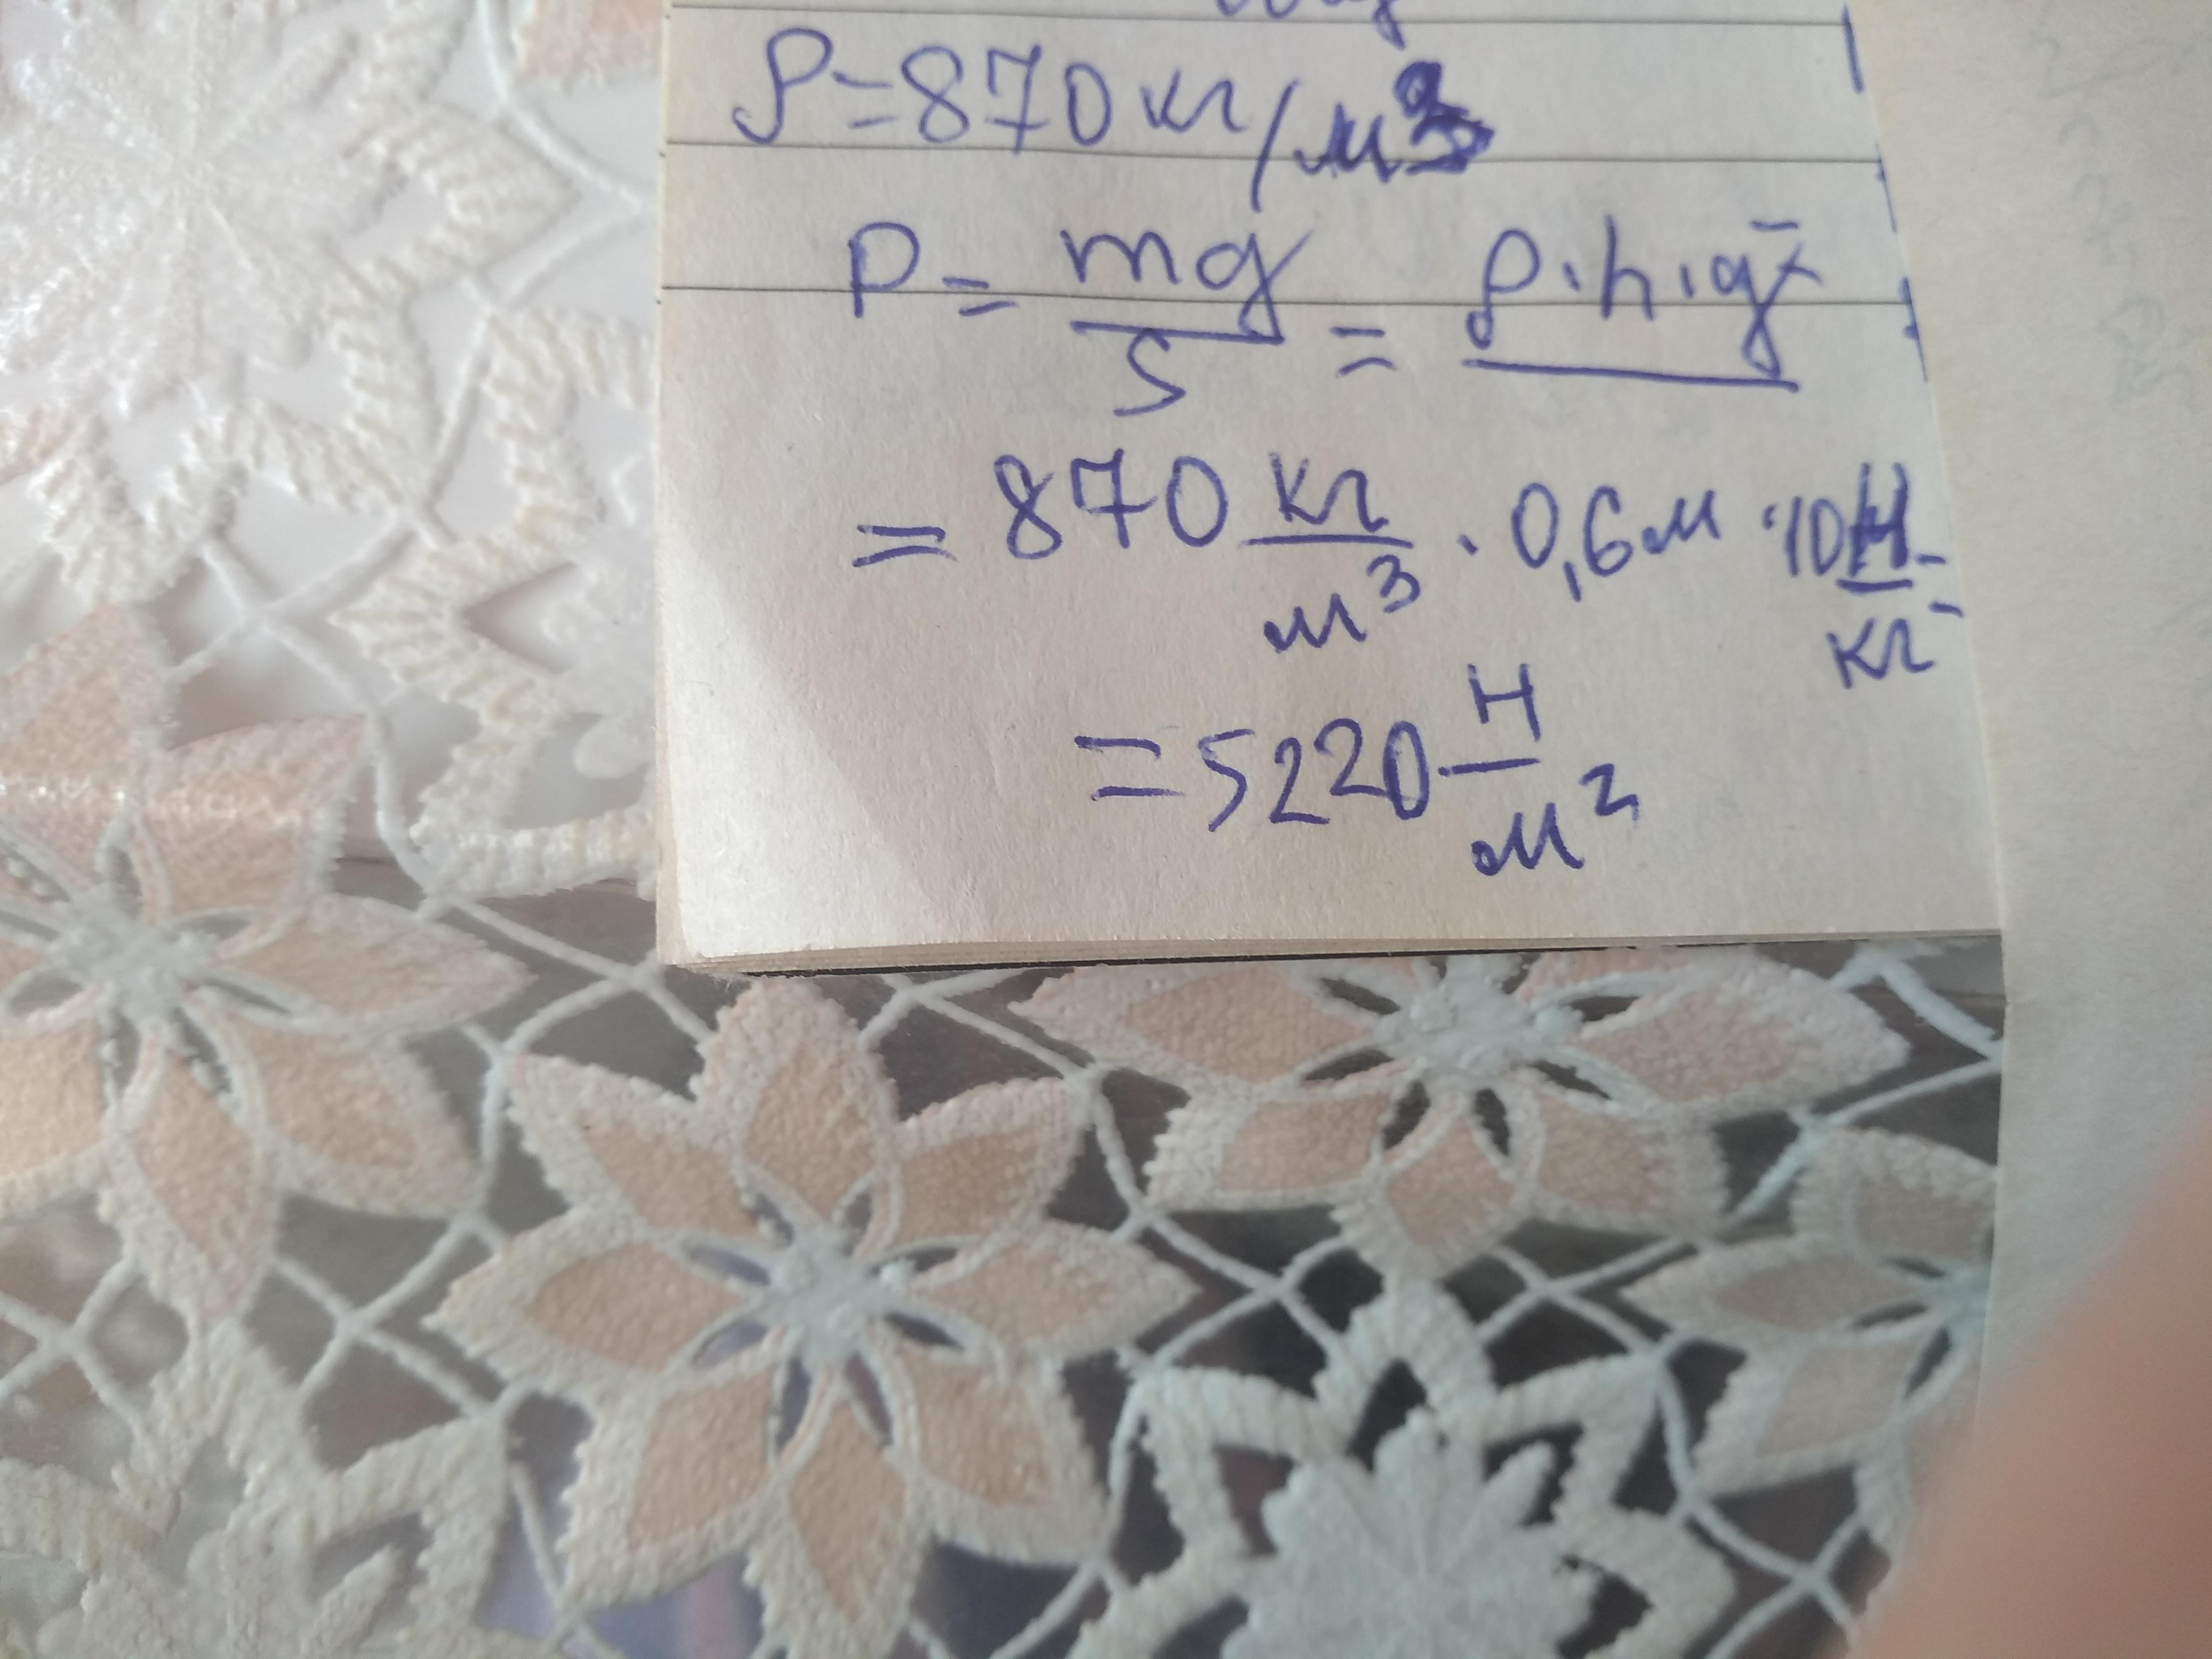 ρ=870 кг/м³
P = mg/S = ρ·h·g =
= 870 кг/м³ · 0,6 м · 10 Н/кг =
= 5220 Н/м²